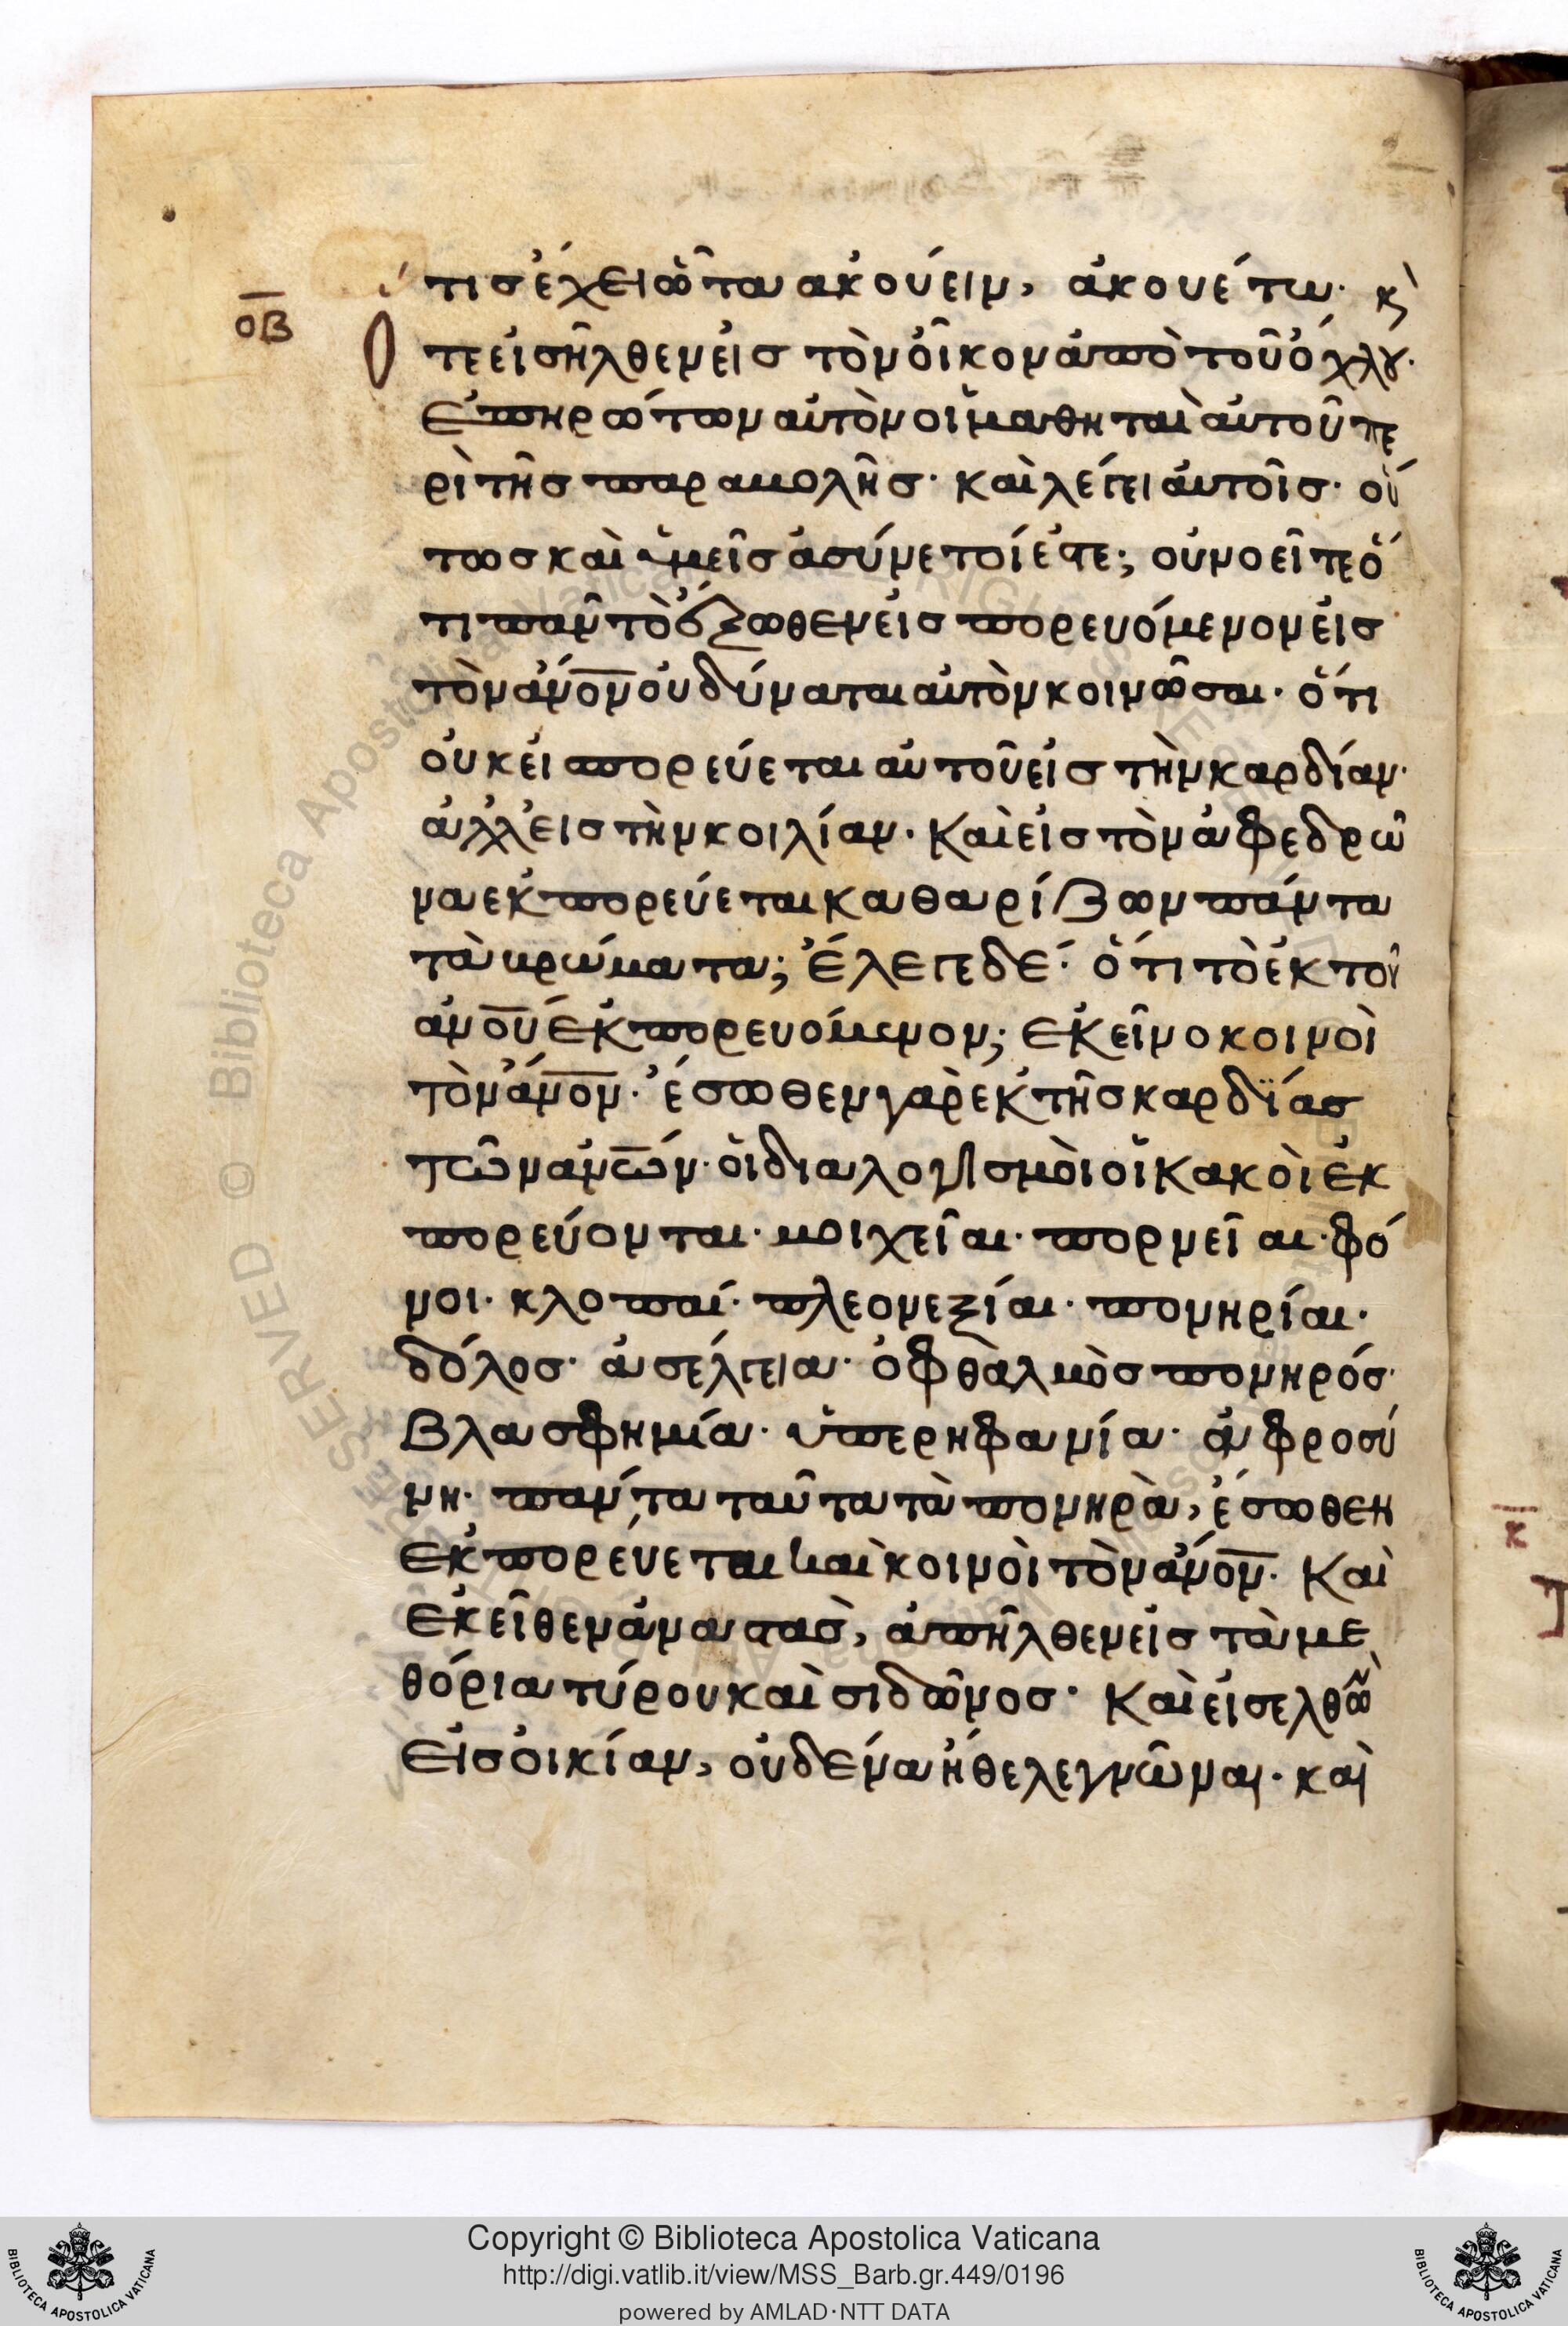 οβ
τις ἔχει ὦτα ἀκούειν, ἀκουέτω· κ
Ὅτε εἰσῆλθεν εἰς τὸν οἶκον ἀπὸ τοῦ ὄχλου·
ἐπηρώτων αὐτὸν οἱ μαθηταὶ αὐτοῦ πε
ρὶ τῆς παραβολῆς· καὶ λέγει αὐτοῖς· οὕ
τως καὶ ὑμεῖς ἀσύνετοί ἐστε; οὐ νοεῖτε ὅ
τι πᾶν τὸ ἔξωθεν εἰσπορευόμενον εἰς
τὸν ἄν̅ο̅ν̅ οὐ δύναται αὐτὸν κοινῶσαι· ὅτι
οὐκ εἰσπορεύεται αὐτοῦ εἰς τὴν καρδίαν·
ἀλλ' εἰς τὴν κοιλίαν· καὶ εἰς τὸν ἀφεδρῶ
να ἐκπορεύεται καθαρίζων πάντα
τὰ βρώματα; ἔλεγε δέ· ὅτι τὸ ἐκ τοῦ
ἀν̅ο̅υ̅ ἐκπορευόμενον; ἐκεῖνο κοινοῖ
τὸν ἄν̅ο̅ν̅· ἔσωθεν γὰρ ἐκ τῆς καρδΐας
τῶν ἀν̅ω̅ν̅· οἱ διαλογισμοὶ οἱ κακοὶ ἐκ
πορεύονται· μοιχεῖαι· πορνεῖαι· φό
νοι· κλοπαί· πλεονεξίαι· πονηρίαι·
δόλος· ἀσέλγεια· ὀφθαλμὸς πονηρός·
βλασφημία· ὑπερηφανία· ἀφροσύ
νη· πάντα ταῦτα τὰ πονηρὰ, ἔσωθεν
ἐκπορεύεται καὶ κοινοῖ τὸν ἄν̅ο̅ν̅· Καὶ
ἐκεῖθεν ἀναστὰς, ἀπῆλθεν εἰς τὰ με
θόρια τύρου καὶ σιδῶνος· Καὶ εἰσελθὼ
εἰς οἰκίαν, οὐδένα ἤθελε γνῶναι· καὶ
κ
Copyright © Biblioteca Apostolica Vaticana
http://digi.vatlib.it/view/MSS_Barb.gr.449/0196
powered by AMLAD·NTT DATA
BIBLIOTECA APOSTOLICA VATICANA
BIBLIOTECA APOSTOLICA VATICANA